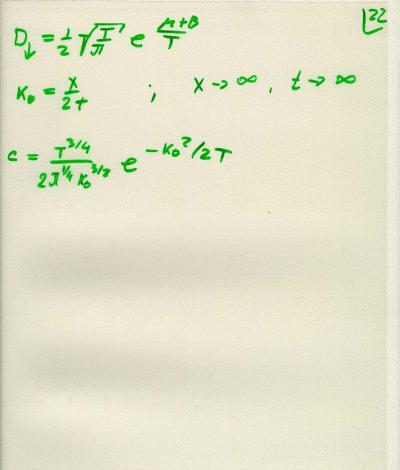 22
D↓ = 1/2 √(T/π) e^((μ+B)/T)
K₀ = x/2t ; x → ∞, t → ∞
c = T^(3/4)/(2π^(1/4) K₀^(3/2)) e^(-K₀²/2T)